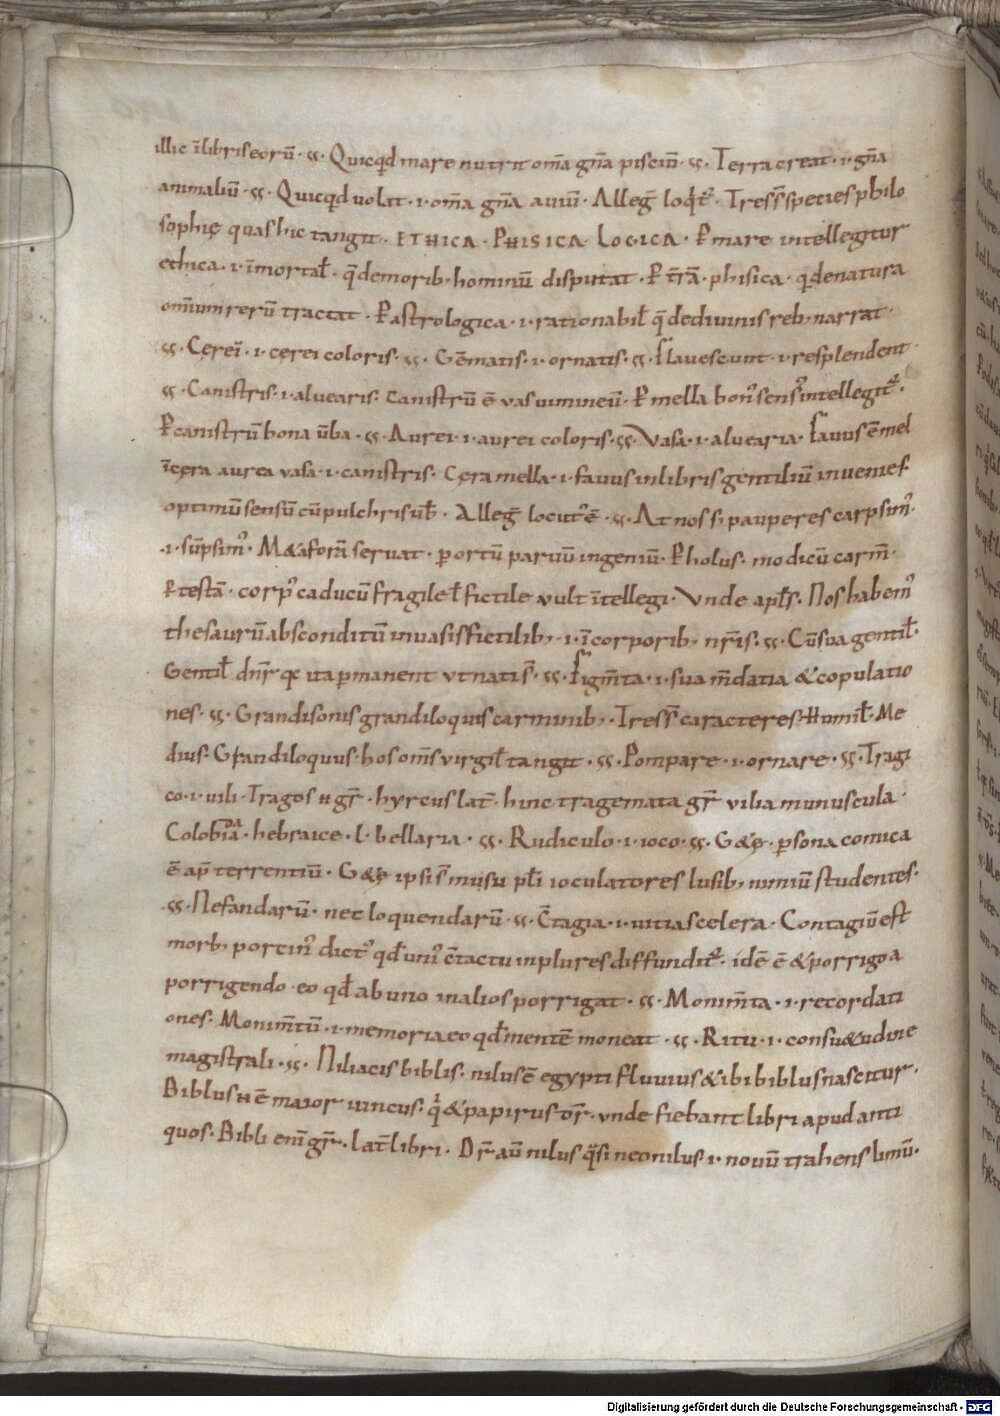 illic īlibris eorū · ss · Quicqd mare nutrit om̄a gn̄a pisciū · ss · Terra creat · i · gn̄a
animaliū · ss · Quicqd uolat · i · om̄a gn̄a auiū · Alleg̅ loqt᷑ · Tres s̄ species philo
sophię quas hic tangit · ETHICA · PHISICA · LOGICA · P mare intellegitur
ethica · i · īmortal̄ · q̄ demorib; hominū disputat · P t̄rā · phisica · q̄ denatura
omniumrerū tractat · P astrologica · i · rationabil̄ q̄ dediuinis reb; narrat ·
ss · Cęreī · i · cęrei coloris · ss · Gēmatis · i · ornatis · ss · Flauescunt · i · resplendent
ss · Canistris · i · aluearis · canistrū ē uas uimineū · P mella bon᷒ sens᷒ intellegit᷑ ·
P canistrū bona ūba · ss · Aurei · i · aurei coloris · ss · Vasa · i · aluearia · Fauus ē mel
īcęra aurea uasa · i · canistris · Cęra mella · i · fauus inlibris gentiliū inuenies
optimū sensū cū pulchris ūb · Alleg̅ locut᷒ ē · ss · At nos s; pauperes carpsim᷒ ·
· i · sūpsim᷒ · M&aforā seruat · p ortū paruū ingeniū · P holus · modicū carm̄ ·
P testā · corp᷒ caducū fragile l̄ fictile uult ītellegi · Vnde apl̄s · Nos habem᷒
thesaurū absconditū inuasis fictilib; · i · īcorporib; nr̄is · ss · Cū sua gentil̄ ·
Gentil̄ dnr̄ qe ita pmanent ut nati s̄ · ss · Figm̄ta · i · sua m̄datia & copulatio
nes · ss · Grandisonis grandiloquis carminib; · Tres s̄ caracteres · Humil̄ · Me
dius · Grandiloquus · hos om̄s uirgil̄ tangit · ss · Pompare · i · ornare · ss · Tragi
co · i · uili · Tragos H gr̄ · hyrcus lat̄ · hinc tragemata gr̄ uilia munuscula ·
Colobia · hebraice · l · bellaria · ss · Rudiculo · i · ioco · ss · G&ę · psona comica
ē ap̄ terrentiū · G&ę ipsi s̄ mijsu pl̄i ioculatores lusib; nimiū studentes ·
ss · Nefandarū · nec loquendarū · ss · C̄tagia · i · uitia scelera · Contagiū est
morb; porcin᷒ dict᷒ qd̄ un᷒ c̄tactu inplures diffundit᷑ · idē ē & porrigo a
porrigendo · eo qd̄ ab uno inalios porrigat · ss · Monim̄ta · i · recordati
ones · Monim̄tū · i · memoria eo qd̄ mentē moneat · ss · Ritu · i · consu&udine
magistrali · ss · Niliacis biblis · nilus ē egypti fluuius & ibi biblus nascitur ·
Biblus H ē maior iuncus · q̄ & papirus · dr̄ · unde fiebant libri apud anti
quos · Bibli eni gr̄ · lat̄ libri · Dr̄ aū nilus q̄si neonilus · i · nouū trahens limū ·
Digitalisierung gefördert durch die Deutsche Forschungsgemeinschaft - DFG